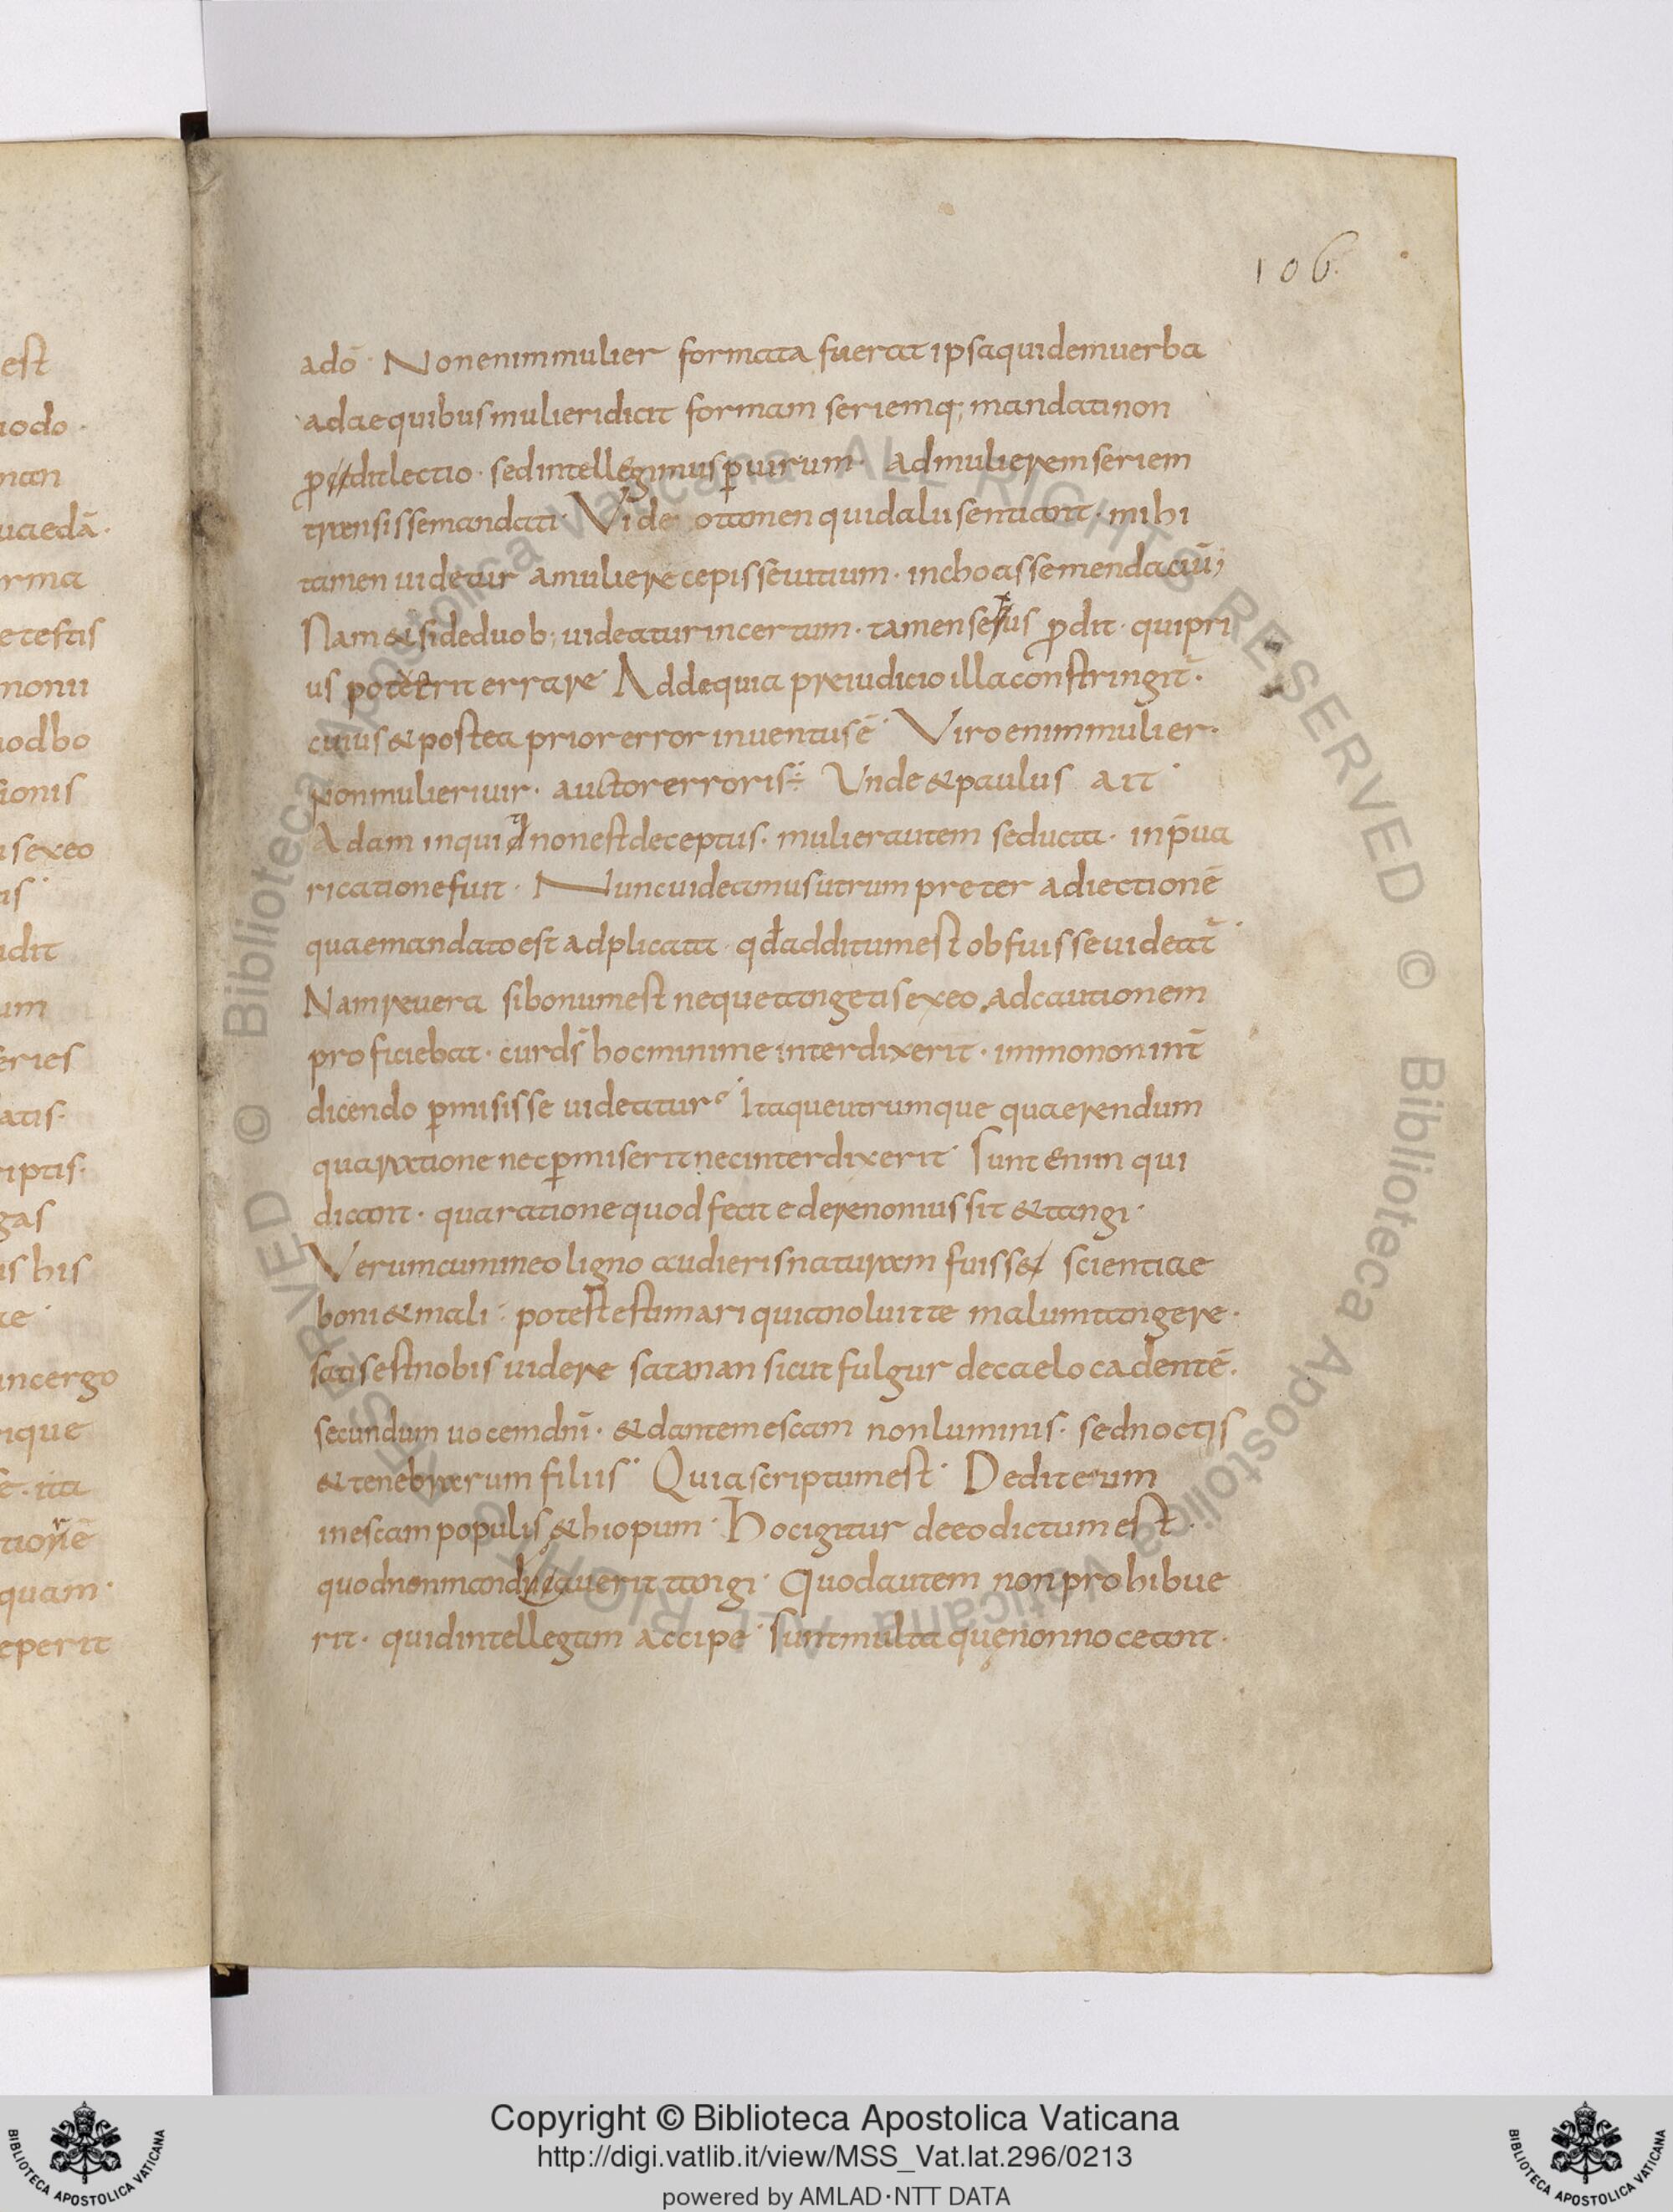 106.
adō · Non enim mulier formata fuerat ipsa quidem uerba
adae quibus mulieri dicit formam seriemq; mandati non
ꝓdit lectio · sed intellegimus ꝑ uirum · ad mulierem seriem
transisse mandati · Vide tamen quid alii sentiant · mihi
tamen uidetur a muliere cepisse uitium · inchoasse mendaciū;
Nam & si de duob; uideatur incertum · tamen sexus ꝓdit · qui pri
us potuerit errare · Adde quia preiudicio illa constringit̄ ·
cuius & postea prior error inuentus ē · Viro enim mulier ·
non mulieri uir · auctor erroris · Vnde & paulus ait ·
Adam inquit non est deceptus · mulier autem seducta · in p̄ua
ricatione fuit · Nunc uideamus utrum preter adiectionē
quae mandato est adplicata · qd̄ additum est obfuisse uideat̄ ·
Nam reuera si bonum est neque tangetis ex eo ad cautionem
proficiebat · cur ds̄ hoc minime interdixerit · immo non int̄
dicendo ꝑmisisse uideatur · Itaque utrumque quaerendum
qua ratione nec ꝑmiserit nec interdixerit · Sunt enim qui
dicant · qua ratione quod fecit edere non ius sit & tangi ·
Verum cum in eo ligno audieris naturam fuisse scientiae
boni & mali · potest estimari quia noluit te malum tangere ·
satis est nobis uidere satanan sicut fulgur de caelo cadentē ·
secundum uocem dnī · & dantem escam non luminis · sed noctis
& tenebrarum filiis · Quia scriptum est · Dedit eum
in escam populis &hiopum · Hoc igitur de eo dictum est ·
quod non manducauerit tangi · Quod autem non prohibue
rit · quid intellegam accipe · Sunt multa quę non noceant ·
est
man
rma
sexeo
um
eries
atis ·
iptis ·
gas
is his
quam ·
eperit
© Biblioteca Apostolica Vaticana ALL RIGHTS RESERVED © Biblioteca Apostolica Vaticana ALL RIGHTS RESERVED
Copyright © Biblioteca Apostolica Vaticana
http://digi.vatlib.it/view/MSS_Vat.lat.296/0213
powered by AMLAD·NTT DATA
BIBLIOTECA APOSTOLICA VATICANA
BIBLIOTECA APOSTOLICA VATICANA